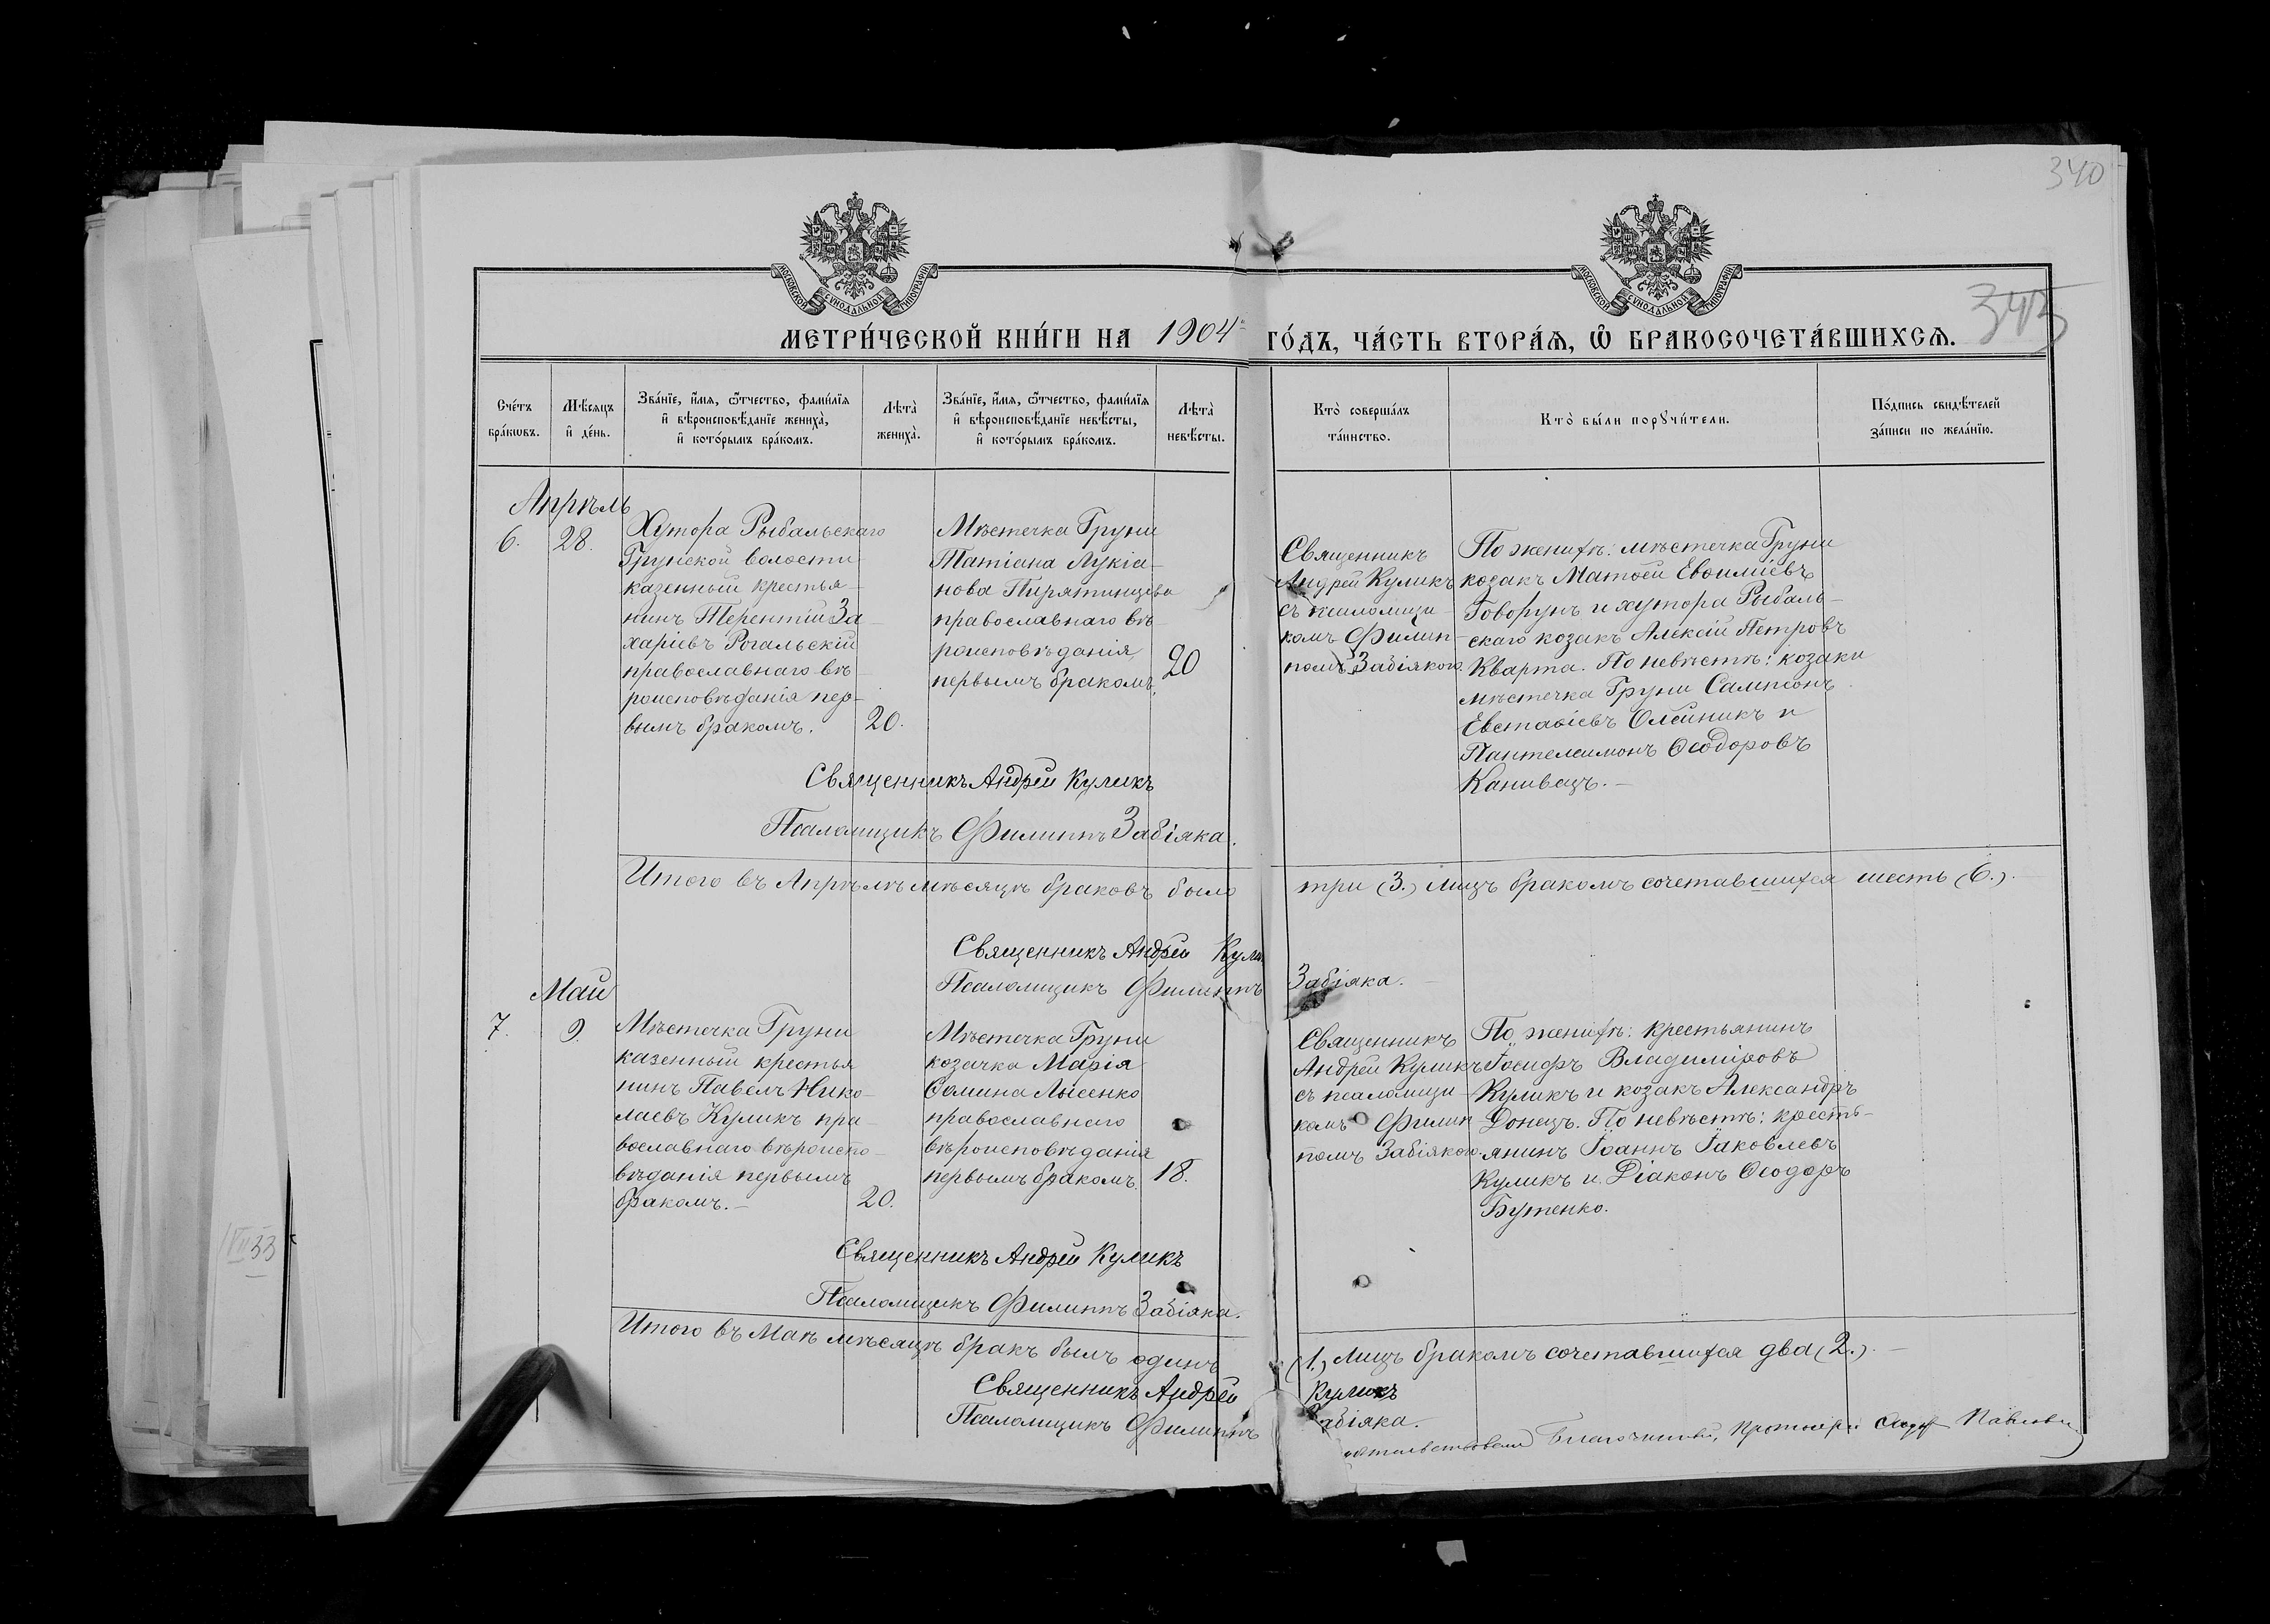 340
345
МОСКОВСКОЙ СѴНОДАЛЬНОЙ ТИПОГРАФІИ
МОСКОВСКОЙ СѴНОДАЛЬНОЙ ТИПОГРАФІИ
МЕТРИ́ЧЕСКОЙ КНИ́ГИ НА 1904 ГО́ДЪ, ЧА́СТЬ ВТОРА́Я, Ѡ БРАКОСОЧЕТА́ВШИХСЯ.
Сче́тъ бра́кѡвъ.
Мѣ́сяцъ и де́нь.
Зва́нїе, и́мя, ѻ҆́тчество, фами́лїя
и вѣроисповѣ́данїе жениха̀,
и кото́рымъ бра́комъ.
Лѣта̀ жениха̀.
Зва́нїе, и́мя, ѻ҆́тчество, фами́лїя
и вѣроисповѣ́данїе невѣ́сты,
и кото́рымъ бра́комъ.
Лѣта̀ невѣ́сты.
Кто̀ соверша́лъ
та́инство.
Кто̀ бы́ли порꙋчи́тели.
По́дпись свидѣ́телей
за́писи по жела́нїю.
Апрѣль
6.
28.
Хутора Рыбальскаго
Грунской волости
казенный крестья-
нинъ Терентій За-
харіевъ Рогальскій
православнаго вѣ-
роисповѣданія пер-
вымъ бракомъ.
20.
Мѣстечка Груни
Татіана Лукіа-
нова Пирятинцева
православнаго вѣ-
роисповѣданія,
первымъ бракомъ.
20
Священникъ
Андрей Куликъ
съ псаломщи-
комъ Филип-
помъ Забіякою.
По женихѣ: мѣстечка Груни
козакъ Матѳей Евѳиміевъ
Говорунъ и хутора Рыбаль-
скаго козакъ Алексій Петровъ
Кварта. По невѣстѣ: козаки
мѣстечка Груни Сампсонъ
Евстаѳіевъ Олейникъ и
Пантелеимонъ Ѳеодоровъ
Канивецъ.
Священникъ Андрей Куликъ
Псаломщикъ Филиппъ Забіяка.
Итого въ Апрѣлѣ мѣсяцѣ браковъ было три (3.) лицъ бракомъ сочетавшихся шесть (6.).
Священникъ Андрей Кули
Псаломщикъ Филиппъ Забіяка.
Май
7.
9.
Мѣстечка Груни
казенный крестья
нинъ Павелъ Нико-
лаевъ Куликъ пра-
вославнаго вѣроиспо-
вѣданія первымъ
бракомъ.
20.
Мѣстечка Груни
козачка Марія
Ѳомина Лысенко
православнаго
вѣроисповѣданія
первымъ бракомъ.
18.
Священникъ
Андрей Куликъ
съ псаломщи-
комъ Филип-
помъ Забіякою.
По женихѣ: крестьянинъ
Іосифъ Владиміровъ
Куликъ и козакъ Александръ
Донецъ. По невѣстѣ: кресть-
янинъ Іоаннъ Іаковлевъ
Куликъ и Діаконъ Ѳеодоръ
Бутенко.
Священникъ Андрей Куликъ
Псаломщикъ Филиппъ Забіяка.
Итого въ Маѣ мѣсяцѣ бракъ былъ одинъ (1.) лицъ бракомъ сочетавшихся два (2.).
Священникъ Андрей Куликъ
Псаломщикъ Филиппъ Забіяка.
Благочинный, Протоіерей
VII 33